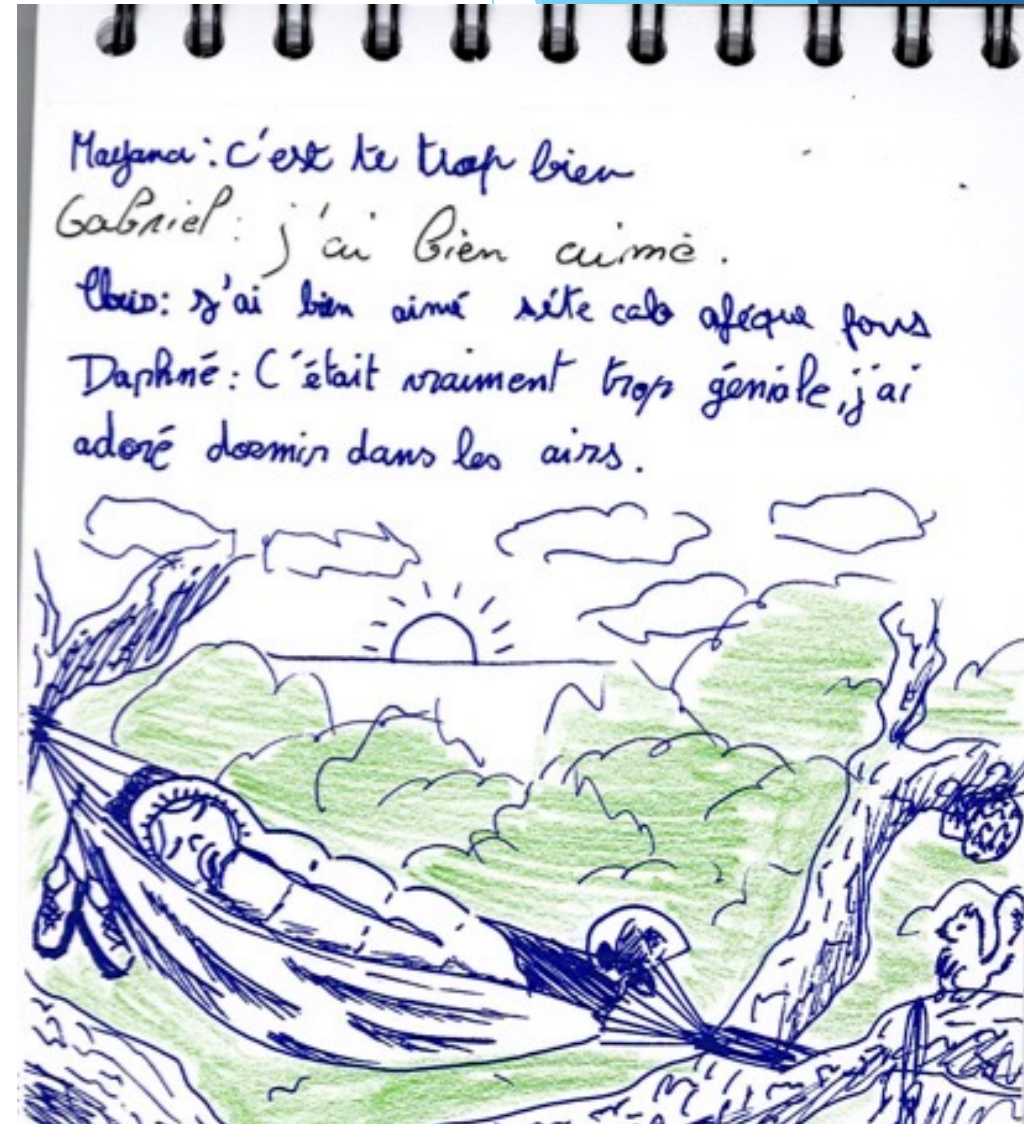 Mayana : c'est te trop bien
Gabriel : j'ai bien aimé.
: j'ai bien aimé séte cab aféque fous
Daphné : C'était vraiment trop géniale, j'ai
adoré dormir dans les airs.